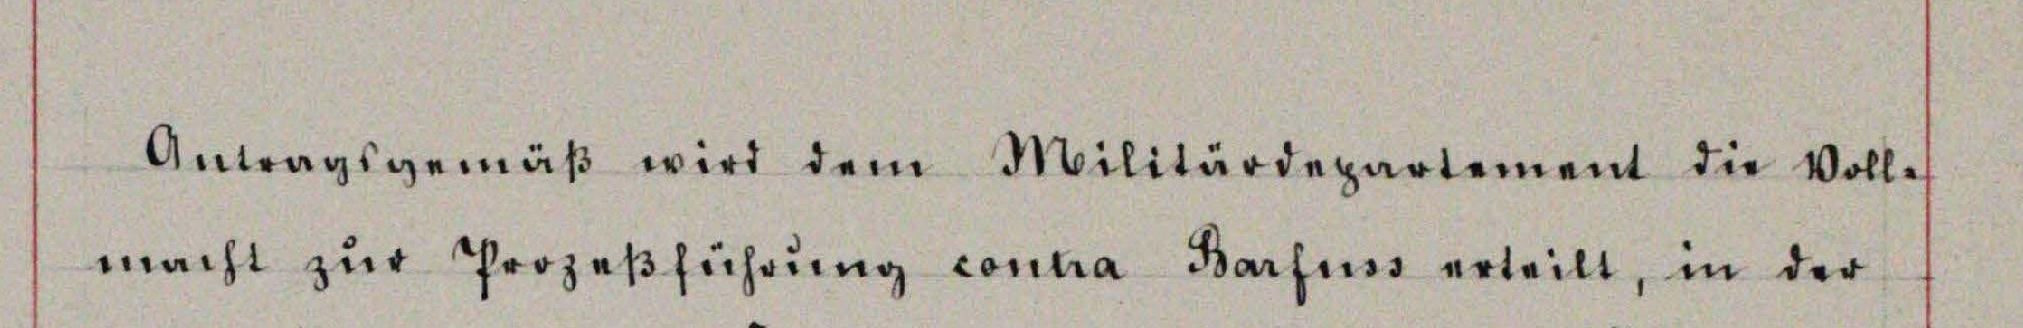 Antragsgemäß wird dem Militärdepartement die Voll-
macht zur Prozeßführung contra Barfuss erteilt, in der